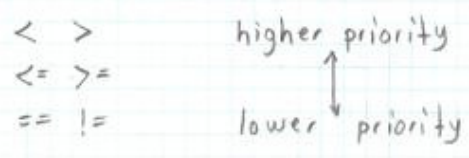 < > higher priority
<= >=
== != lower priority